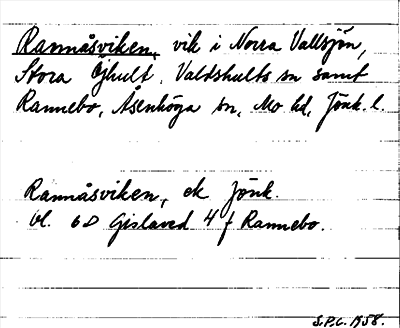 Rannåsviken, vik i Norra Vallsjön,
Stora Öjhult, Valdshults sn samt
Rannebo, Åsenhöga sn, Mo hd, Jönk. l.
Rannåsviken, ek Jönk.
bl. 6D Gislaved 4 f Rannebo.
S.P.C. 1958.